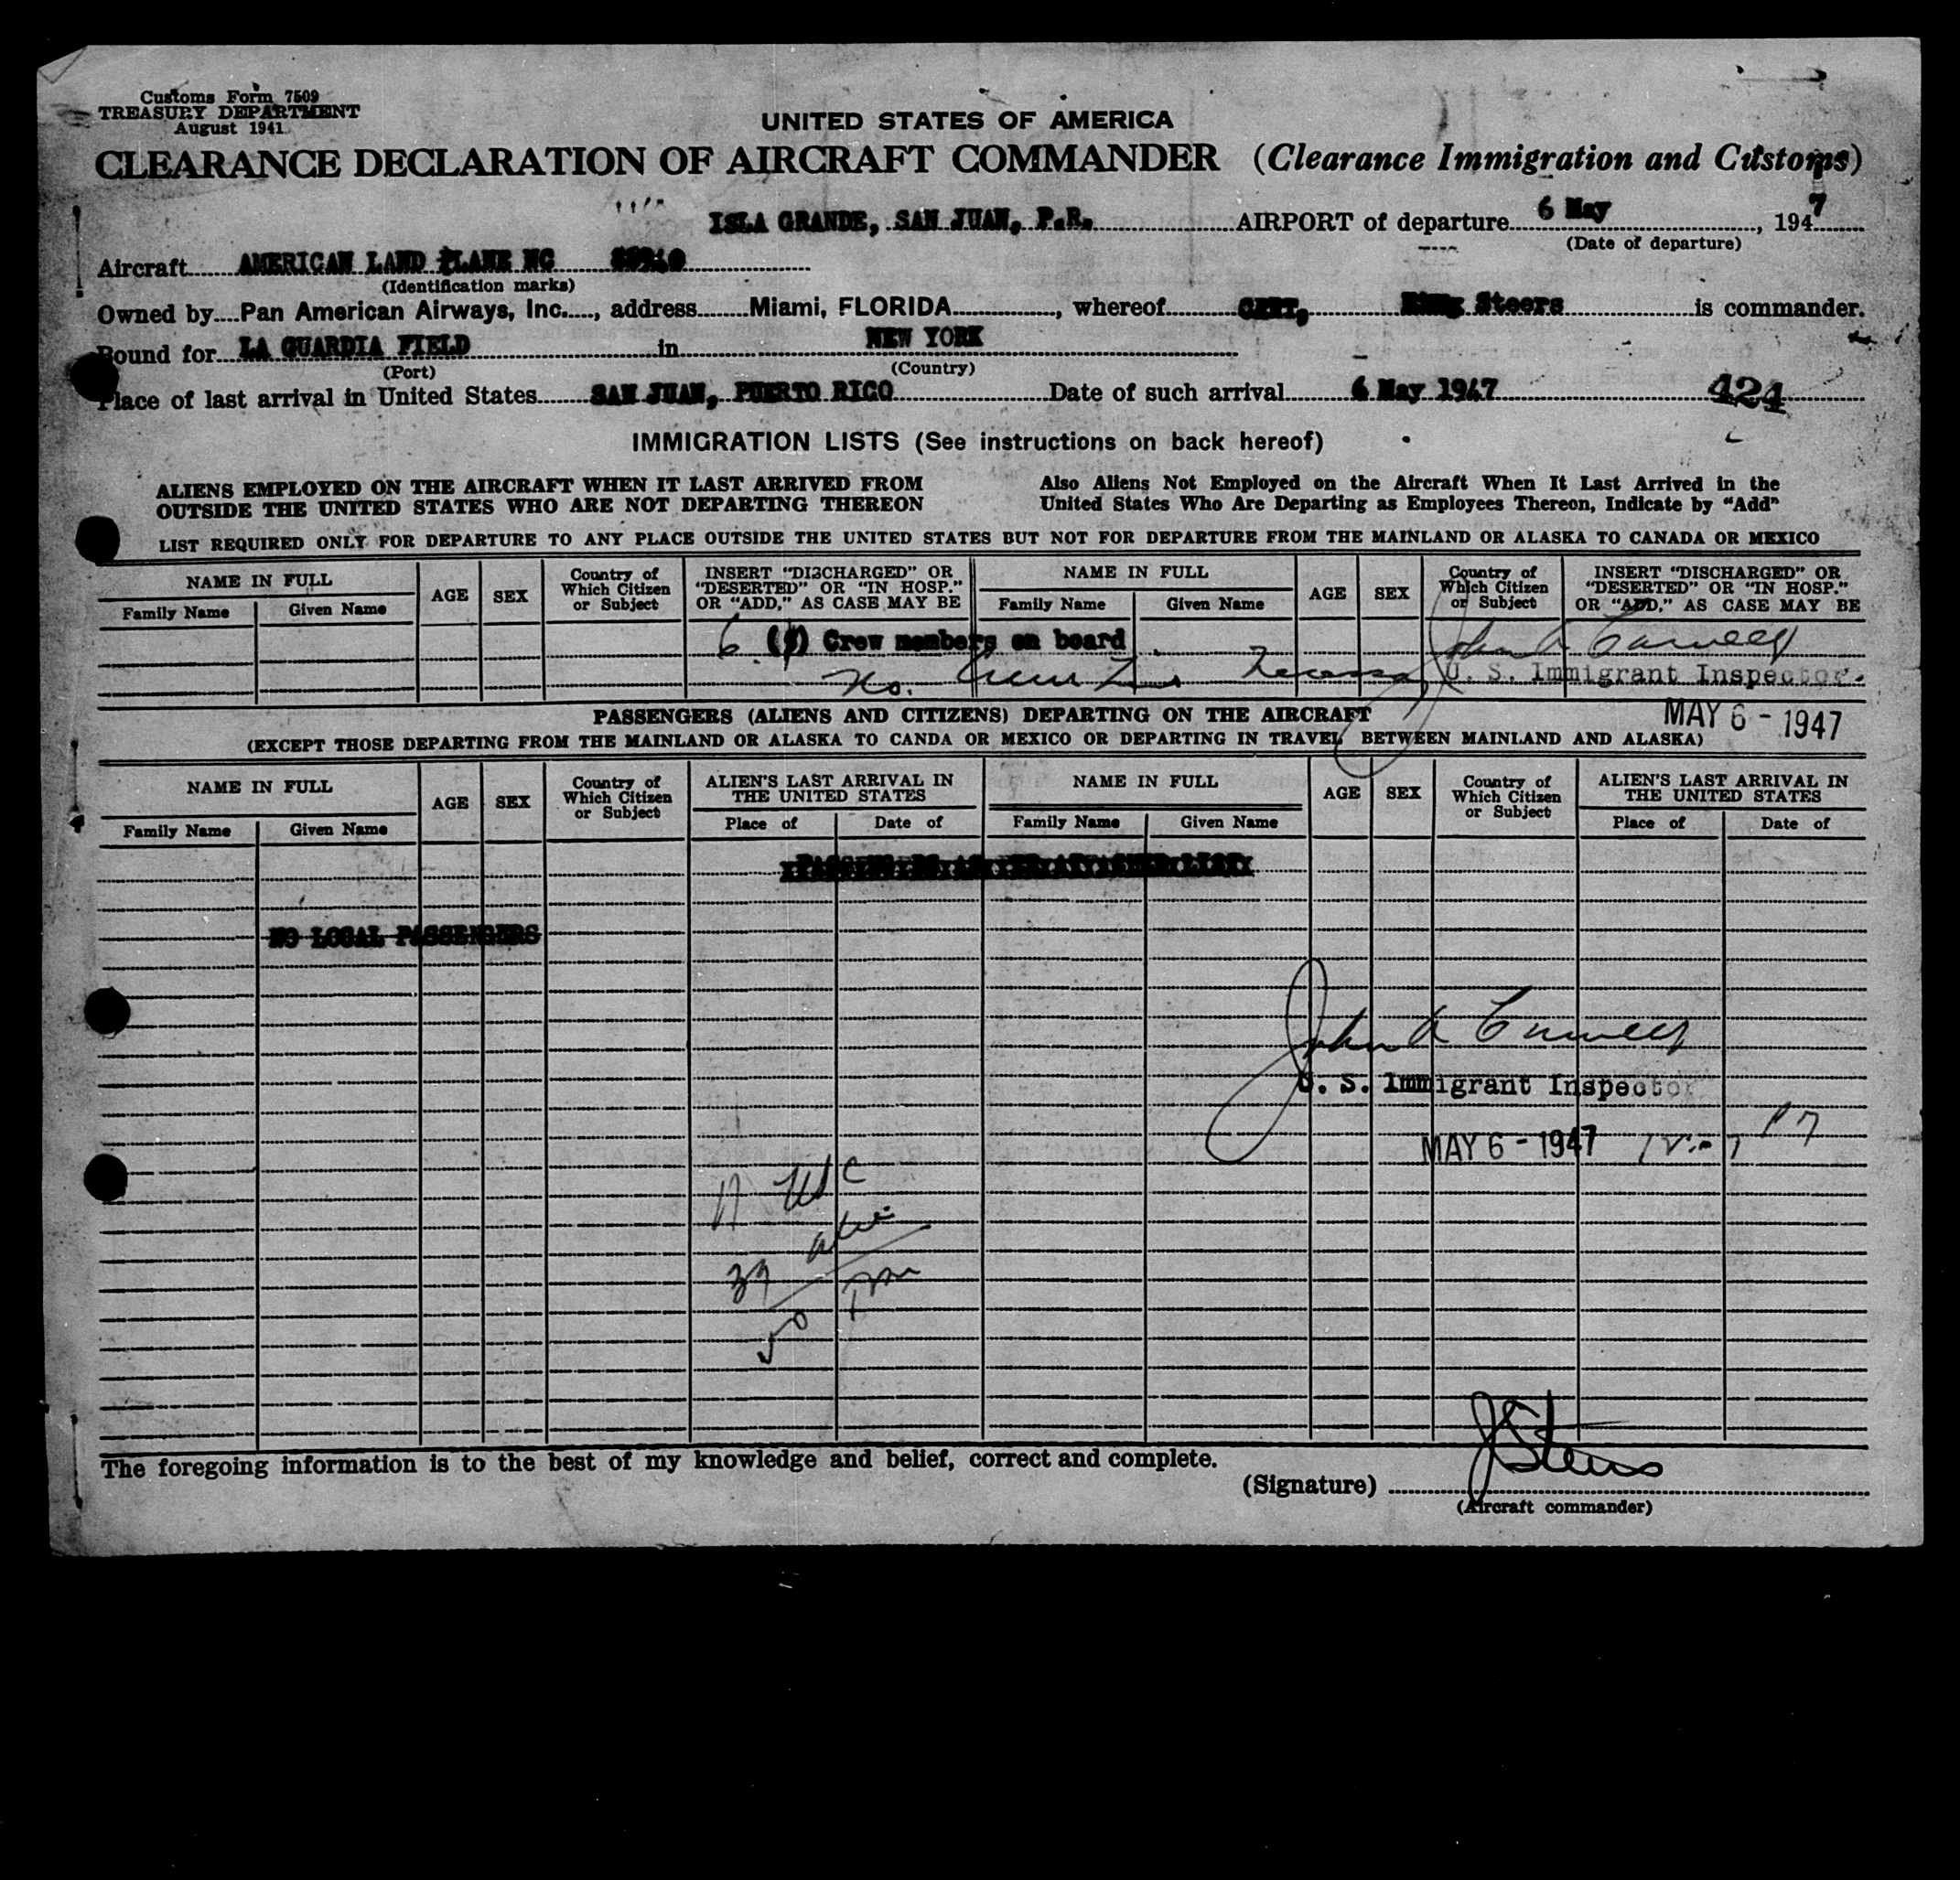 Customs Form 7509
TREASURY DEPARTMENT
August 1941
UNITED STATES OF AMERICA
CLEARANCE DECLARATION OF AIRCRAFT COMMANDER (Clearance Immigration and Customs)
ISLA GRANDE, SAN JUAN, P.R. AIRPORT of departure 6 May, 1947
(Date of departure)
Aircraft AMERICAN LAND PLANE NC
(Identification marks)
Owned by Pan American Airways, Inc., address Miami, FLORIDA, whereof King Steers is commander.
Bound for LA GUARDIA FIELD in NEW YORK
(Port) (Country)
Place of last arrival in United States SAN JUAN, PUERTO RICO Date of such arrival 6 May 1947 424
IMMIGRATION LISTS (See instructions on back hereof)
ALIENS EMPLOYED ON THE AIRCRAFT WHEN IT LAST ARRIVED FROM
OUTSIDE THE UNITED STATES WHO ARE NOT DEPARTING THEREON
Also Aliens Not Employed on the Aircraft When It Last Arrived in the
United States Who Are Departing as Employees Thereon, Indicate by "Add"
LIST REQUIRED ONLY FOR DEPARTURE TO ANY PLACE OUTSIDE THE UNITED STATES BUT NOT FOR DEPARTURE FROM THE MAINLAND OR ALASKA TO CANADA OR MEXICO
NAME IN FULL
Family Name Given Name
AGE
SEX
Country of
Which Citizen
or Subject
INSERT "DISCHARGED" OR
"DESERTED" OR "IN HOSP."
OR "ADD," AS CASE MAY BE
NAME IN FULL
Family Name Given Name
AGE
SEX
Country of
Which Citizen
or Subject
INSERT "DISCHARGED" OR
"DESERTED" OR "IN HOSP."
OR "ADD," AS CASE MAY BE
6 Crew members on board
No. Crew
U. S. Immigrant Inspector.
MAY 6 - 1947
PASSENGERS (ALIENS AND CITIZENS) DEPARTING ON THE AIRCRAFT
(EXCEPT THOSE DEPARTING FROM THE MAINLAND OR ALASKA TO CANDA OR MEXICO OR DEPARTING IN TRAVEL BETWEEN MAINLAND AND ALASKA)
NAME IN FULL
Family Name Given Name
AGE
SEX
Country of
Which Citizen
or Subject
ALIEN'S LAST ARRIVAL IN
THE UNITED STATES
Place of Date of
NAME IN FULL
Family Name Given Name
AGE
SEX
Country of
Which Citizen
or Subject
ALIEN'S LAST ARRIVAL IN
THE UNITED STATES
Place of Date of
NO LOCAL PASSENGERS
John A
U. S. Immigrant Inspector
MAY 6 - 1947
11 USC
39
50
The foregoing information is to the best of my knowledge and belief, correct and complete.
(Signature) J Steers
(Aircraft commander)